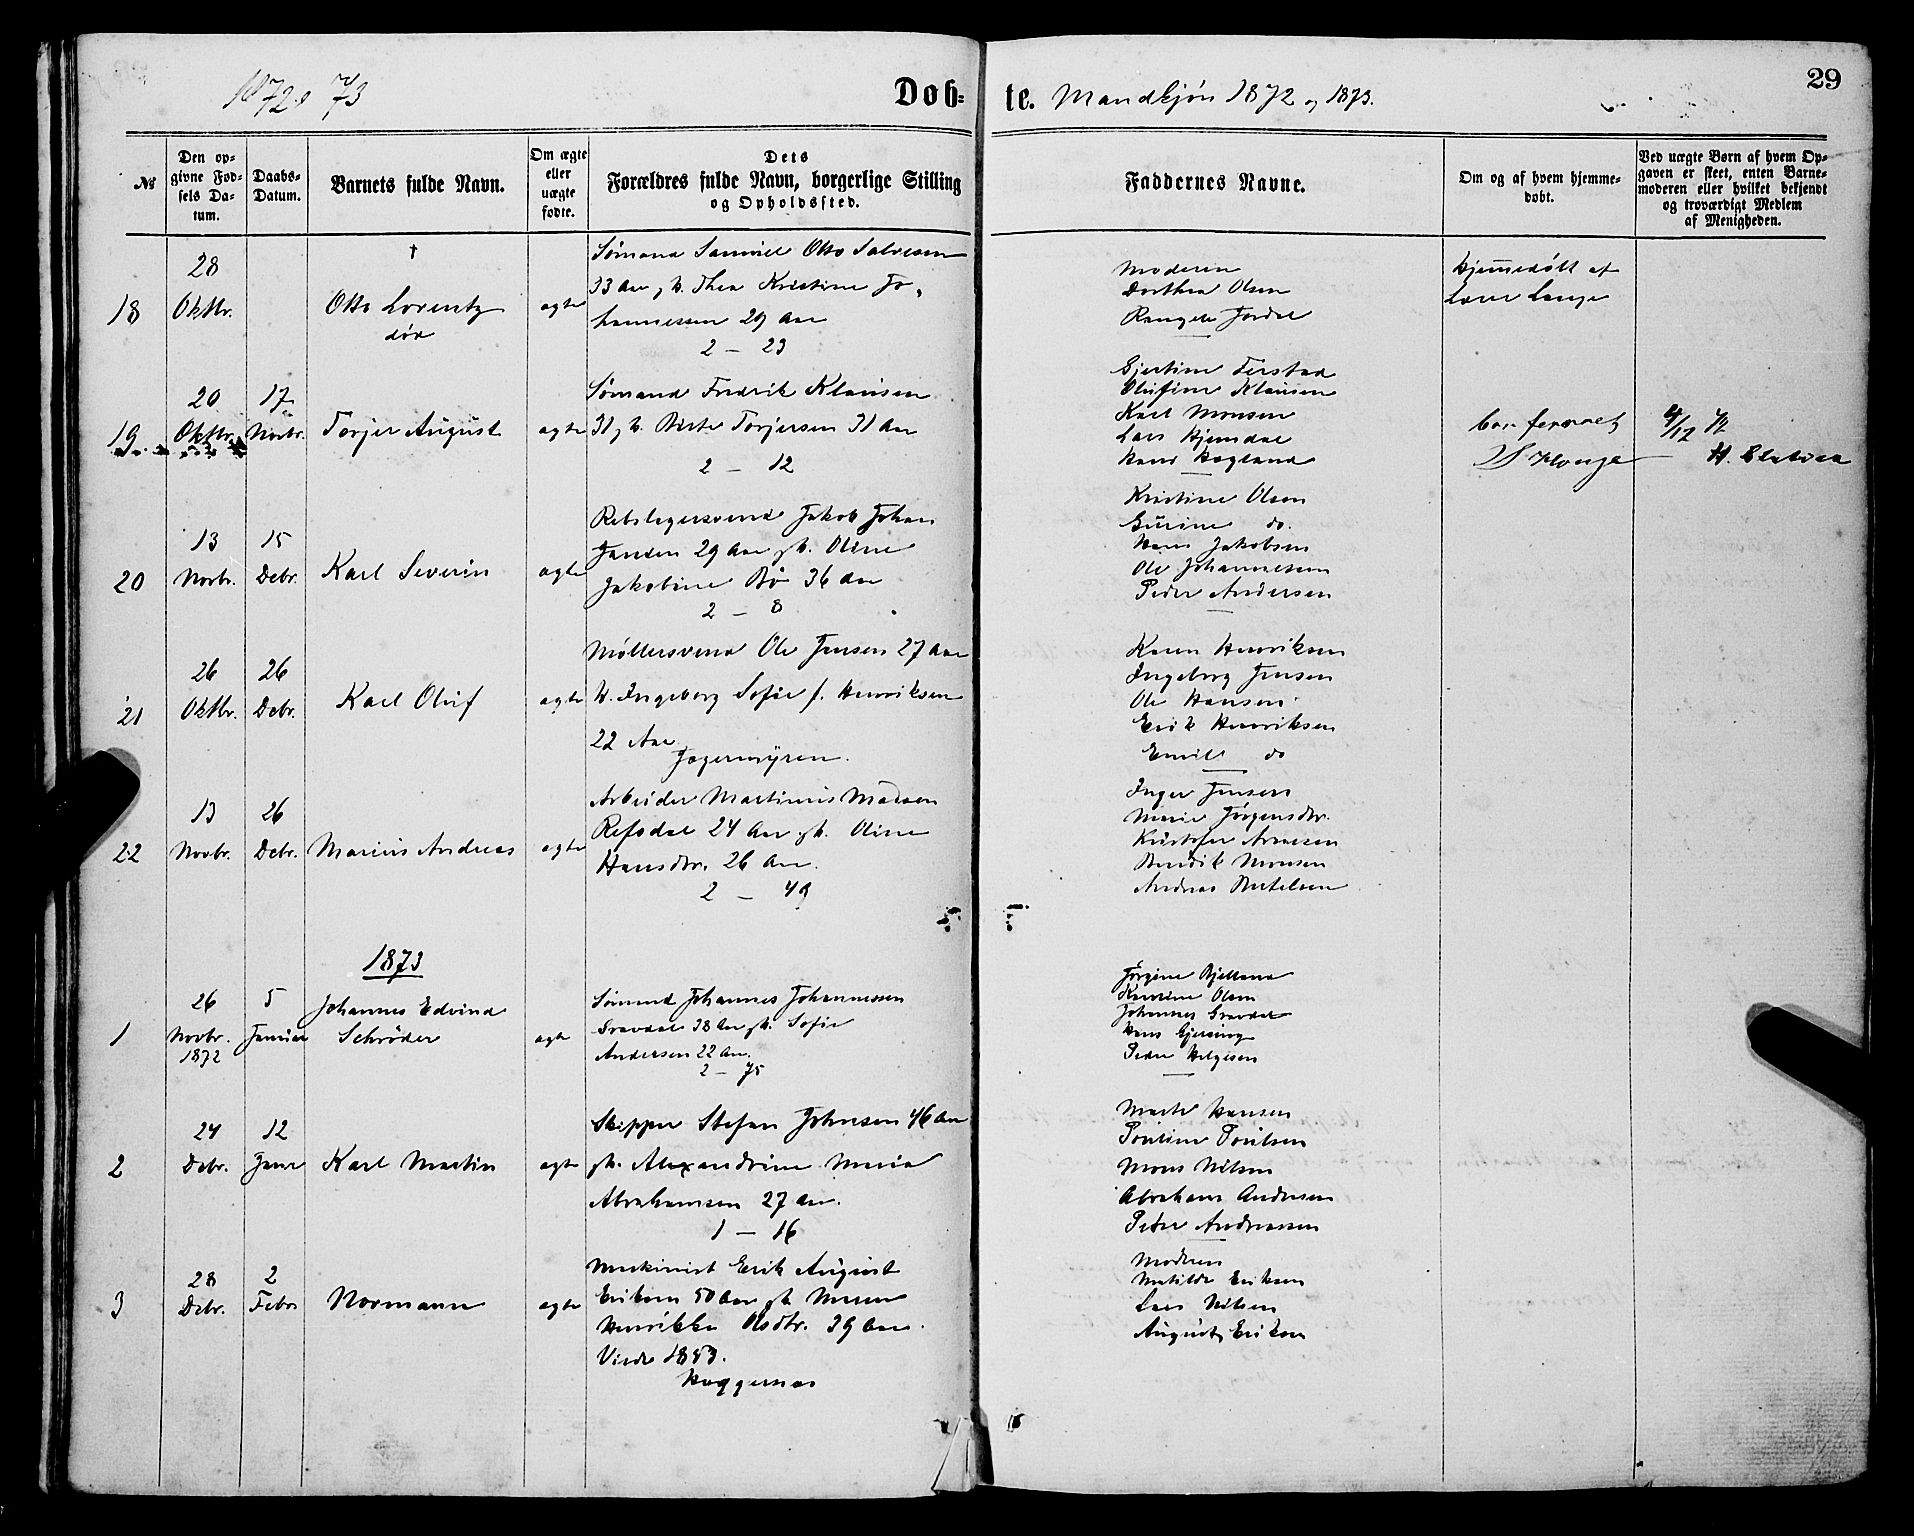 1872 & 73
Døb=
te. Mandkjøn 1872 og 1873.
29
No
Den op-
givne Fød-
sels Da-
tum.
Daabs-
Datum.
Barnets fulde Navn.
Om ægte
eller
uægte
fødte.
Dets
Forældres fulde Navn, borgerlige Stilling
og Opholdssted.
Faddernes Navne.
Om og af hvem hjemme-
døbt.
Ved uægte Børn af hvem Op-
gaven er skeet, enten Barne-
moderen eller hvilket bekjendt
og troværdigt Medlem
af Menigheden.
18
28
Oktbr.
†
Otto Lorentz
død
ægte
Sømand Samuel Otto Salvesen
33 Aar g. h. Thea Kristine Jo-
hannessen 29 Aar
2 — 23
Moderen
Dorthea Olsen
Fordal
hjemmedøbt af
19
20
Oktbr.
17
Novbr.
Torjer August
ægte
Sømand Fredrik Klausen
31 g. h. Birte Torjersen 31 Aar
2 — 12
Gjertine Ferstad
Olufine Klausen
Karl Monsen
Lars Hjemdal
Hans Hagland
4/12 72
20
13
Novbr.
15
Debr.
Karl Severin
ægte
Rebslagersvend Jakob Johan
Jansen 29 Aar g. h. Oline
Jakobine Bø 36 Aar
2 — 8
Kristine Olsen
Gurine do.
Hans Jakobsen
Ole Johannessen
Peder Andersen
21
26
Oktbr.
26
Debr.
Karl Oluf
ægte
Møllersvend Ole Jensen 27 Aar
h. Ingeborg Sofie f. Henriksen
22 Aar
Jægermyren.
Karen Henriksen
Ingeborg Jensen
Ole Hansen
Erik Henriksen
Emil do
22
13
Novbr.
26
Debr.
Marius Andreas
ægte
Arbeider Martinius Madsen
Refsdal 24 Aar g. h. Oline
Hansdtr. 26 Aar.
2 — 49
Inger Jensen
Marie Jørgensdtr.
Kristofer Arnesen
Bendik Monsen
Andreas Bertelsen
1873
1
26
Novbr.
1872
5
Januar
Johannes Edvind
Schrøder
ægte
Sømand Johannes Johannessen
Gravdal 38 Aar g. h. Sofie
Andersen 22 Aar.
2 — 75
Jørgine Bjelland
Karine Olsen
Johannes Gravdal
Hans Gjersing
Peder Helgesen
2
24
Debr.
12
Janr
Karl Martin
ægte
Skipper Stefan Johnsen 46 Aar
g. h. Alexandrine Maria
Abrahamsen 27 Aar.
1 — 16
Marte Hansen
Pouline Poulsen
Mons Nilsen
Abraham Andersen
Peter Andreassen
3
28
Debr.
2
Febr
Normann
ægte
Maskinist Erik August
Eriksen 50 Aar g. h. Maren
Henrikke Olsdtr. 39 Aar.
Viede 1853.
Haggernæs
Moderen
Matilde Eriksen
Lars Nilsen
August Eriksen